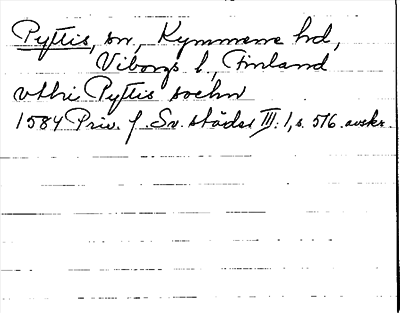 Pyttis, sn, Kymmene hd,
Viborgs l, Finland
vthi Pyttis sochn
1584 Priv. f. Sv. städer III: 1, s. 516. avskr.